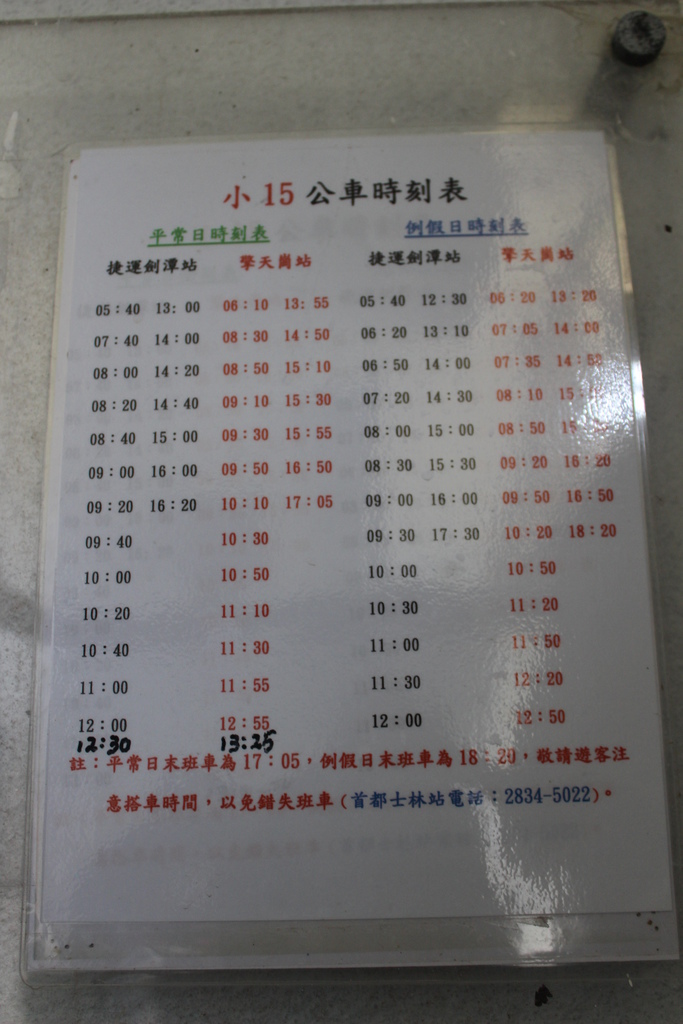 小 15 公車時刻表
平常日時刻表 例假日時刻表
捷運劍潭站 擎天崗站 捷運劍潭站 擎天崗站
05:40 13:00 06:10 13:55 05:40 12:30 06:20 13:20
07:40 14:00 08:30 14:50 06:20 13:10 07:05 14:00
08:00 14:20 08:50 15:10 06:50 14:00 07:35 14:50
08:20 14:40 09:10 15:30 07:20 14:30 08:10
08:40 15:00 09:30 15:55 08:00 15:00 08:50
09:00 16:00 09:50 16:50 08:30 15:30 09:20 16:20
09:20 16:20 10:10 17:05 09:00 16:00 09:50 16:50
09:40 10:30 09:30 17:30 10:20 18:20
10:00 10:50 10:00 10:50
10:20 11:10 10:30 11:20
10:40 11:30 11:00 11:50
11:00 11:55 11:30 12:20
12:00 12:55 12:00 12:50
12:30 13:25
註：平常日末班車為 17：05，例假日末班車為 18：20，敬請遊客注
意搭車時間，以免錯失班車（首都士林站電話：2834-5022）。